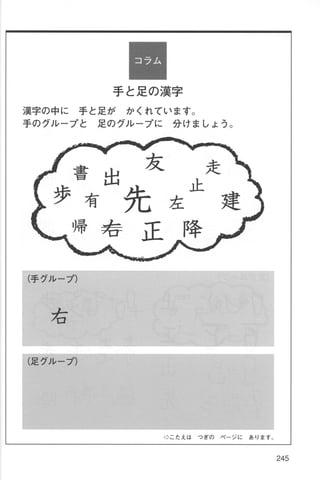 コラム
手と足の漢字
漢字の中に 手と足が かくれています。
手のグループと 足のグループに 分けましょう。
友 走
書 出 止
歩 有 先 左 建
帰 右 正 降
(手グループ)
右
(足グループ)
⇨こたえは つぎの ページに あります。
245